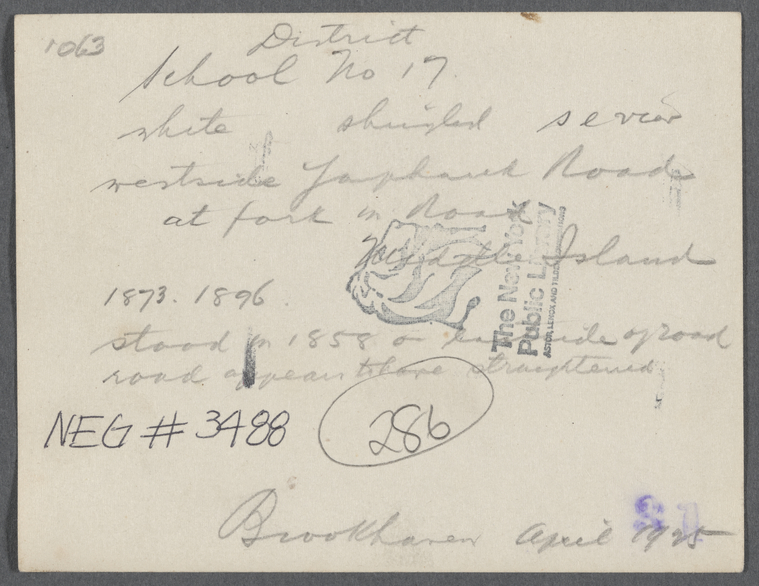 1063
District
School No 17.
white shingled
westside Yaphank Road
at fork in Road
Middle Island
1873. 1896.
stood in 1858 on side of road
road appears to have straightened
The New York
Public Library
ASTOR, LENOX AND TILDEN
NEG # 3488
286
Brookhaven April 1925
81